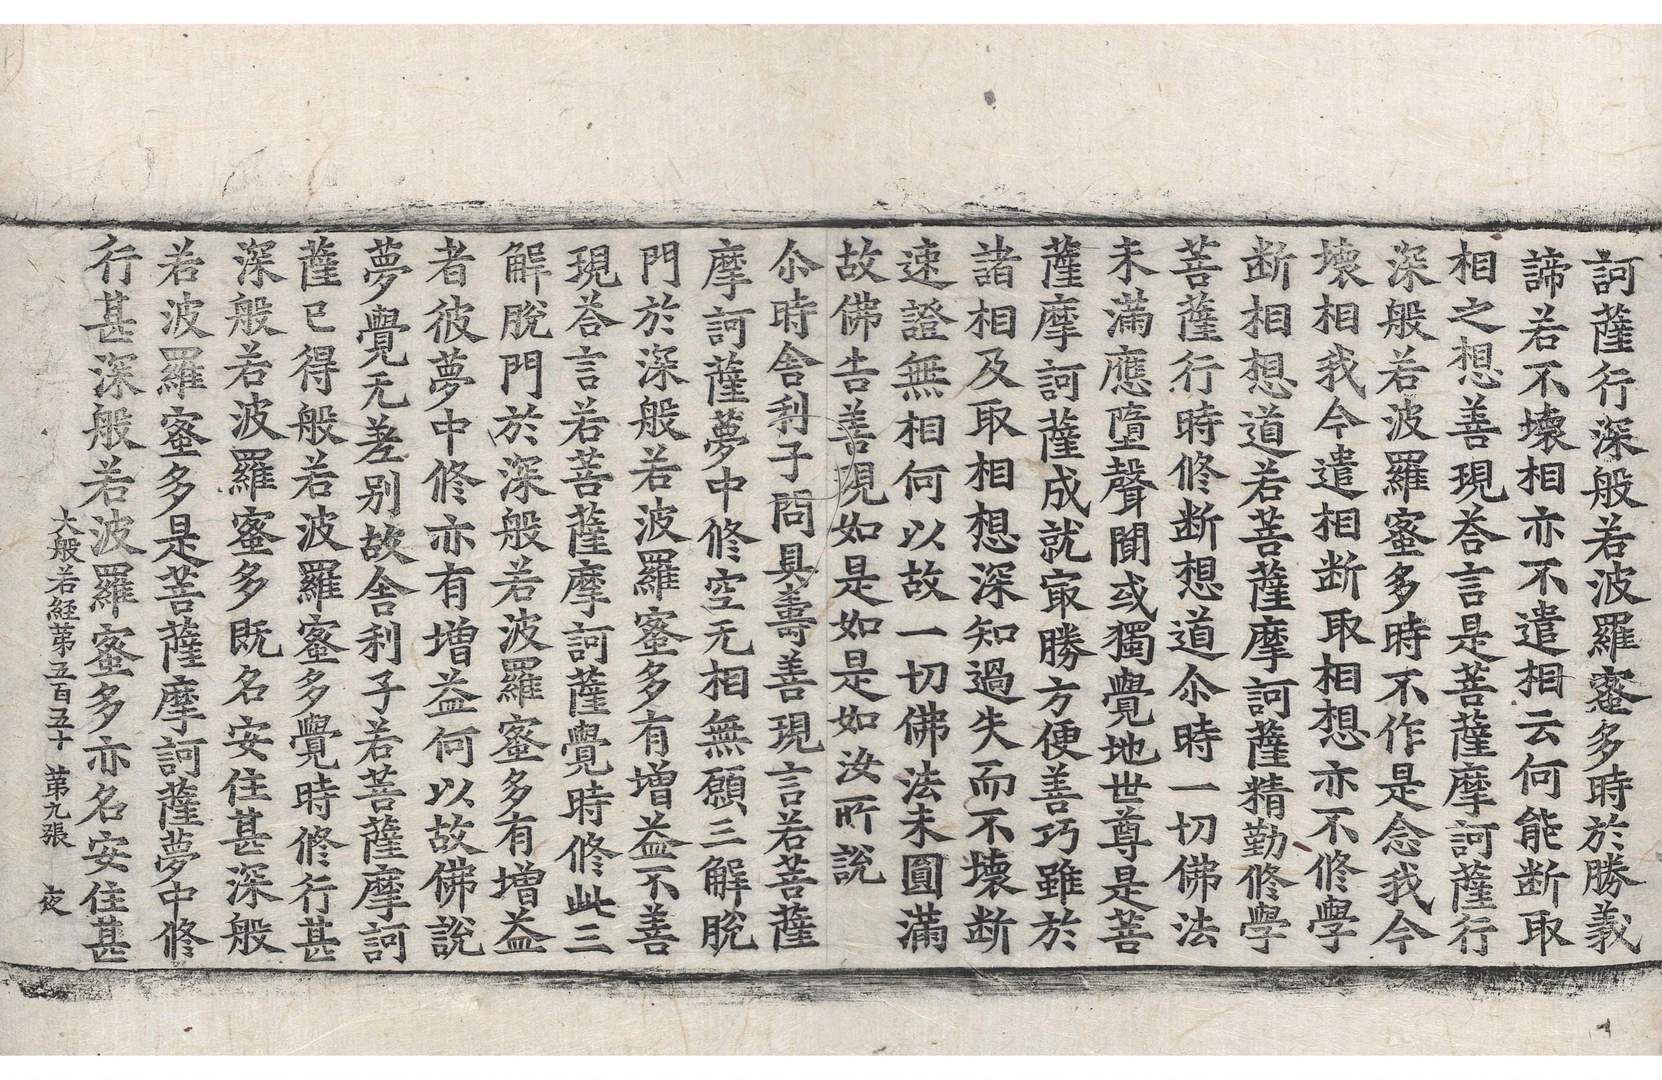 訶薩行深般若波羅蜜多時於勝義
諦若不壞相亦不遣相云何能断取
相之想善現荅言是菩薩摩訶薩行
深般若波羅蜜多時不作是念我今
壞相我今遣相断取相想亦不修學
断相想道若菩薩摩訶薩精勤修學
菩薩行時修断想道尒時一切佛法
未滿應墮聲聞或獨覺地世尊是菩
薩摩訶薩成就㝡勝方便善巧雖於
諸相及取相想深知過失而不壞断
速證無相何以故一切佛法未圓滿
故佛告善現如是如是如汝所說
尒時舍利子問具壽善現言若菩薩
摩訶薩夢中修空无相無願三解脫
門於深般若波羅蜜多有增益不善
現荅言若菩薩摩訶薩覺時修此三
解脫門於深般若波羅蜜多有增益
者彼夢中修亦有增益何以故佛說
夢覺无差别故舍利子若菩薩摩訶
薩已得般若波羅蜜多覺時修行甚
深般若波羅蜜多既名安住甚深般
若波羅蜜多是菩薩摩訶薩夢中修
行甚深般若波羅蜜多亦名安住甚
大般若経苐五百五十 苐九張 夜